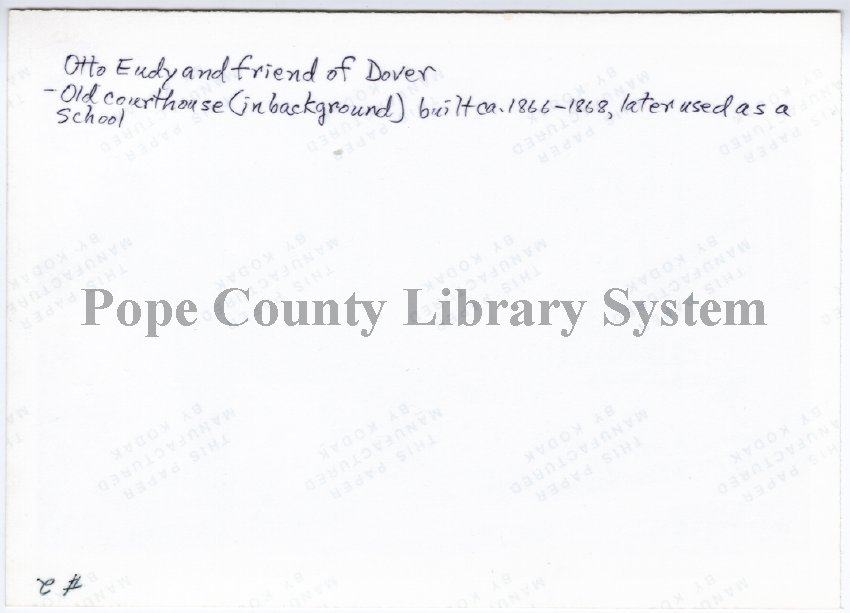 Otto Eudy and friend of Dover
- Old courthouse (in background) built ca. 1866-1868, later used as a
School
THIS PAPER
MANUFACTURED
BY KODAK
Pope County Library System
# 2